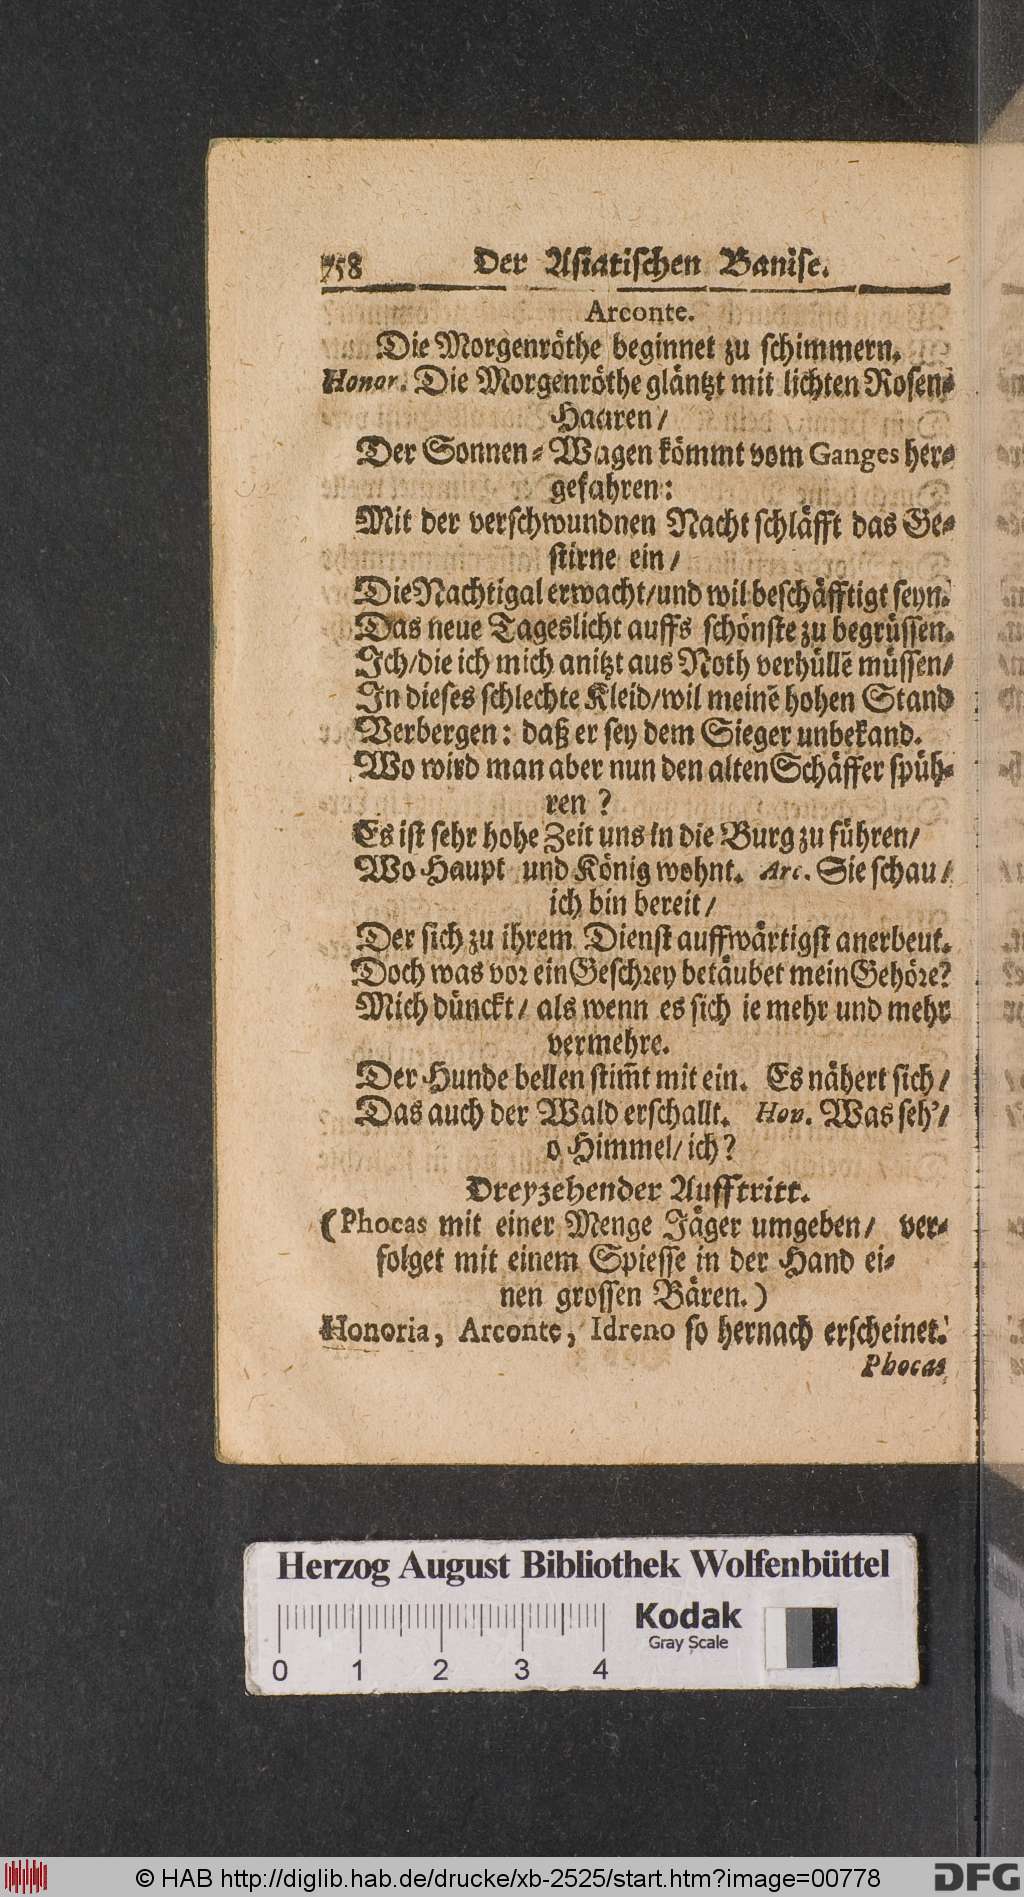 758 Der Asiatischen Banise.
Arconte.
Die Morgenröthe beginnet zu schimmern.
Honor. Die Morgenröthe gläntzt mit lichten Rosen-
Haaren/
Der Sonnen-Wagen kömmt vom Ganges her-
gefahren:
Mit der verschwundnen Nacht schläfft das Ge-
stirne ein/
Die Nachtigal erwacht/und wil beschäfftigt seyn.
Das neue Tageslicht auffs schönste zu begrüssen.
Ich/die ich mich anitzt aus Noth verhüllē müssen/
In dieses schlechte Kleid/wil meinē hohen Stand
Verbergen: daß er sey dem Sieger unbekand.
Wo wird man aber nun den alten Schäffer spüh-
ren ?
Es ist sehr hohe Zeit uns in die Burg zu führen/
Wo Haupt und König wohnt. Arc. Sie schau/
ich bin bereit/
Der sich zu ihrem Dienst auffwärtigst anerbeut.
Doch was vor ein Geschrey betäubet mein Gehöre?
Mich dünckt/ als wenn es sich ie mehr und mehr
vermehre.
Der Hunde bellen stim̃t mit ein. Es nähert sich/
Das auch der Wald erschallt. Hon. Was seh'/
o Himmel/ ich?
Dreyzehender Aufftritt.
(Phocas mit einer Menge Jäger umgeben/ ver-
folget mit einem Spiesse in der Hand ei-
nen grossen Bären.)
Honoria, Arconte, Idreno so hernach erscheinet.
Phocas
Herzog August Bibliothek Wolfenbüttel
Kodak
Gray Scale
0 1 2 3 4
© HAB http://diglib.hab.de/drucke/xb-2525/start.htm?image=00778
DFG